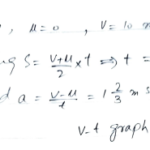 , u=0 , V= 10
S= V+u/2 × t ⇒ t =
d a = V-u/t = 1 2/3 m s
v-t graph